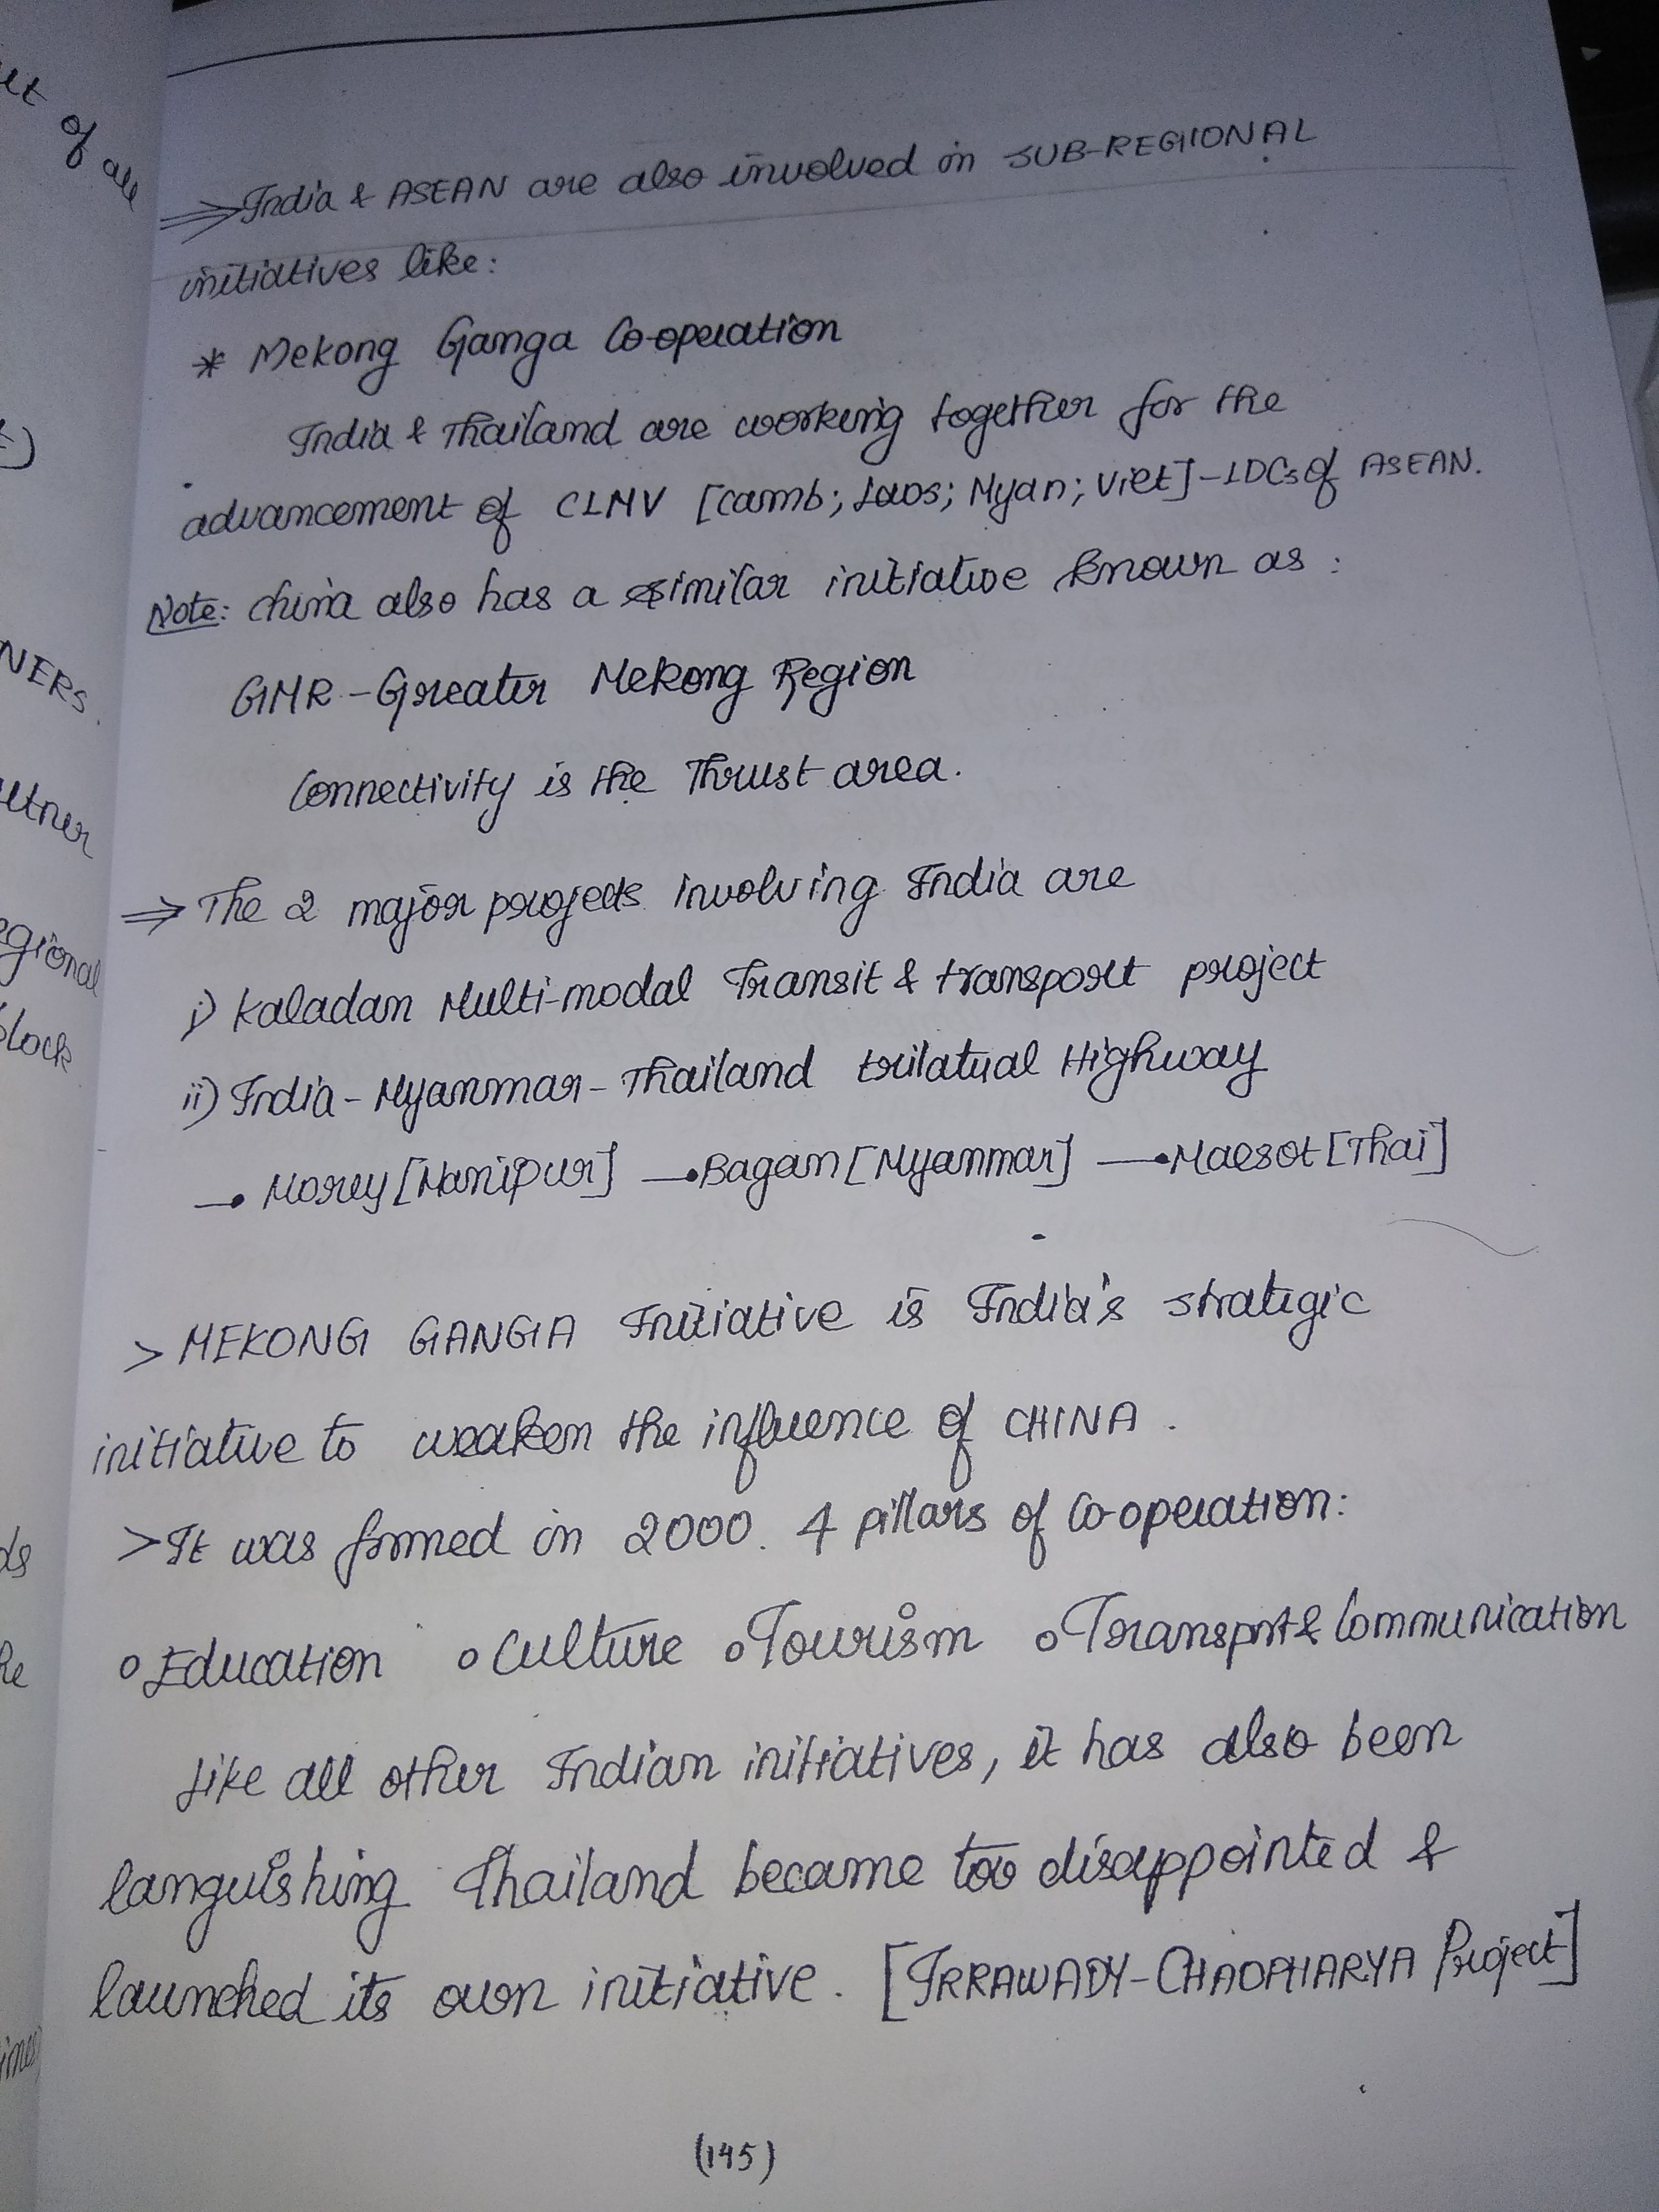 ⇒ India & ASEAN are also involved in SUB-REGIONAL
initiatives like:
* Mekong Ganga Co-operation
India & Thailand are working together for the
advancement of CLMV [Camb; Laos; Myan; Viet] - LDCs of ASEAN.
Note: China also has a similar initiative known as :
GMR - Greater Mekong Region
Connectivity is the Thrust area.
⇒ The 2 major projects involving India are
i) Kaladan Multi-modal Transit & transport project
ii) India - Myanmar - Thailand trilateral Highway
→ Morey [Manipur] → Bagan [Myanmar] → Maesot [Thai]
> MEKONG GANGA Initiative is India's strategic
initiative to weaken the influence of CHINA.
> It was formed in 2000. 4 pillars of Co-operation:
o Education o Culture o Tourism o Transport & Communication
Like all other Indian initiatives, it has also been
languishing Thailand became too disappointed &
launched its own initiative. [IRRAWADY-CHAOPHARYA Project]
(145)
of all
NERS.
egional
block